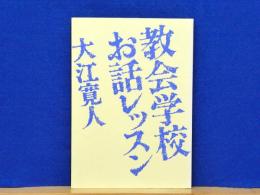 教会学校
お話レッスン
大江寛人